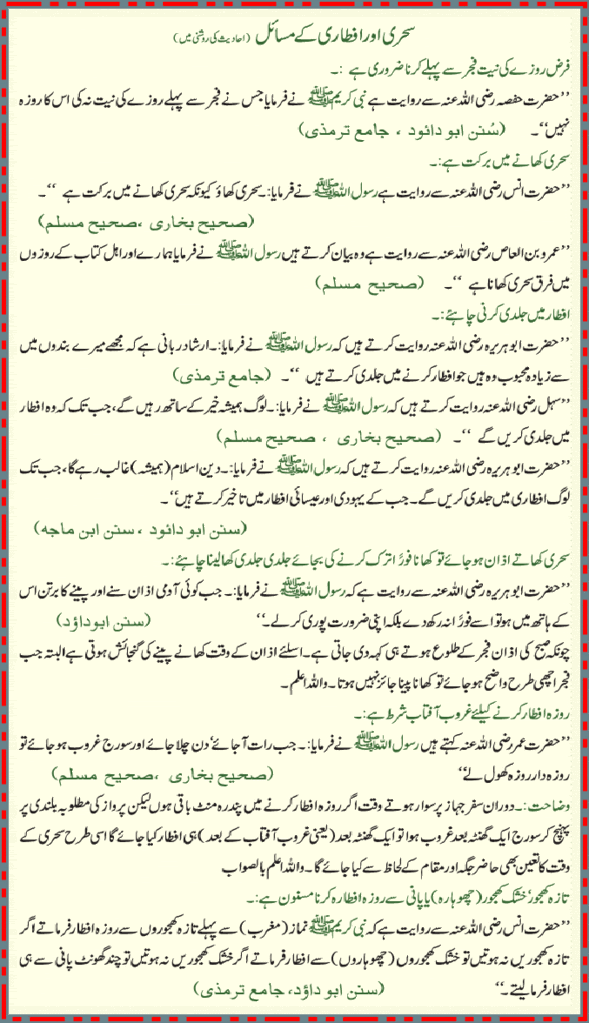 سحری اور افطاری کے مسائل (احادیث کی روشنی میں)
فرض روزے کی نیت فجر سے پہلے کرنا ضروری ہے :۔
’’حضرت حفصہ رضی اللہ عنہ سے روایت ہے نبی کریمﷺ نے فرمایا جس نے فجر سے پہلے روزے کی نیت نہ کی اس کا روزہ
نہیں‘‘۔ (سُنن ابو دائود ، جامع ترمذی)
سحری کھانے میں برکت ہے:۔
’’حضرت انس رضی اللہ عنہ سے روایت ہے رسول اللہﷺ نے فرمایا:۔سحری کھاؤ کیونکہ سحری کھانے میں برکت ہے ‘‘۔
(صحیح بخاری ،صحیح مسلم)
’’عمرو بن العاص رضی اللہ عنہ سے روایت ہے وہ بیان کرتے ہیں رسول اللہﷺ نے فرمایا ہمارے اور اہل کتاب کے روزوں
میں فرق سحری کھانا ہے ‘‘۔ (صحیح مسلم)
افطار میں جلدی کرنی چاہئے:۔
’’حضرت ابو ہریرہ رضی اللہ عنہ روایت کرتے ہیں کہ رسول اللہﷺ نے فرمایا:۔ارشاد ربانی ہے کہ مجھے میرے بندوں میں
سے زیادہ محبوب وہ ہیں جو افطار کرنے میں جلدی کرتے ہیں ‘‘۔ (جامع ترمذی)
’’سہل رضی اللہ عنہ روایت کرتے ہیں کہ رسول اللہﷺ نے فرمایا:۔لوگ ہمیشہ خیر کے ساتھ رہیں گے، جب تک کہ وہ افطار
میں جلدی کریں گے ‘‘۔ (صحیح بخاری ، صحیح مسلم)
’’حضرت ابو ہریرہ رضی اللہ عنہ روایت کرتے ہیں کہ رسول اللہﷺ نے فرمایا:۔دین اسلام (ہمیشہ) غالب رہے گا، جب تک
لوگ افطاری میں جلدی کریں گے۔ جب کے یہودی اور عیسائی افطار میں تاخیر کرتے ہیں‘‘۔
(سنن ابو دائود ، سنن ابن ماجہ)
سحری کھاتے اذان ہو جائے تو کھانا فورًا ترک کرنے کی بجائے جلدی جلدی کھا لینا چاہئے:۔
’’حضرت ابو ہریرہ رضی اللہ عنہ سے روایت ہے کہ رسول اللہﷺ نے فرمایا:۔ جب کوئی آدمی اذان سنے اور پینے کا برتن اس
کے ہاتھ میں ہو تو اسے فورًا نہ رکھ دے بلکہ اپنی ضرورت پوری کر لے۔‘‘ (سنن ابوداؤد)
چونکہ صبح کی اذان فجر کے طلوع ہوتے ہی کہہ دی جاتی ہے۔ اسلئے اذان کے وقت کھانے پینے کی گنجائش ہوتی ہے البتہ جب
فجر اچھی طرح واضح ہو جائے تو کھانا پینا جائز نہیں ہوتا۔ واللہ اعلم۔
روزہ افطار کرنے کیلئے غروب آفتاب شرط ہے:۔
’’حضرت عمر رضی اللہ عنہ کہتے ہیں رسول اللہﷺ نے فرمایا:۔ جب رات آ جائے‘ دن چلا جائے اور سورج غروب ہو جائے تو
روزہ دار روزہ کھول لے‘‘ (صحیح بخاری ،صحیح مسلم)
وضاحت:۔ دوران سفر جہاز پر سوار ہوتے وقت اگر روزہ افطار کرنے میں پندرہ منٹ باقی ہوں لیکن پرواز کی مطلوبہ بلندی پر
پہنچ کر سورج ایک گھنٹہ بعد غروب ہوا تو ایک گھنٹہ بعد (یعنی غروب آفتاب کے بعد) ہی افطار کیا جائے گا اسی طرح سحری کے
وقت کا تعین بھی حاضر جگہ اور مقام کے لحاظ سے کیا جائے گا۔ واللہ اعلم بالصواب
تازہ کھجور‘ خشک کھجور (چھوہارہ) یا پانی سے روزہ افطارہ کرنا مسنون ہے:۔
’’حضرت انس رضی اللہ عنہ سے روایت ہے کہ نبی کریمﷺ نماز (مغرب) سے پہلے تازہ کھجوروں سے روزہ افطار فرماتے اگر
تازہ کھجوریں نہ ہوتیں تو خشک کھجوروں (چھوہاروں) سے افطار فرماتے اگر خشک کھجوریں نہ ہوتیں تو چند گھونٹ پانی سے ہی
افطار فرما لیتے۔‘‘ (سنن ابو داؤد، جامع ترمذی)